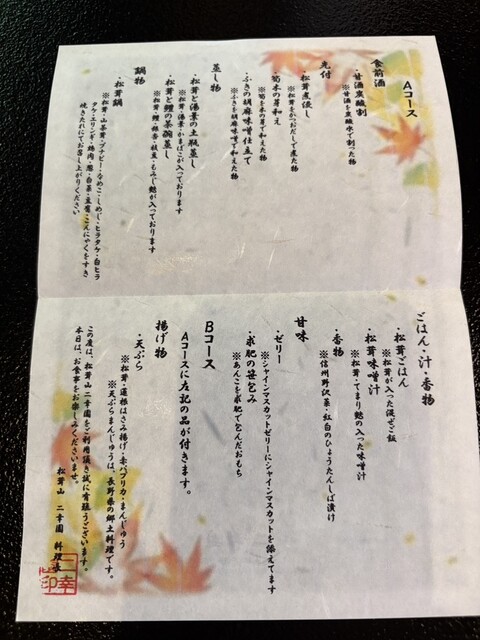 Aコース
食前酒
・甘酒炭酸割
※甘酒を炭酸水で割った物
先付
・松茸煮浸し
※松茸をかつおだしで煮た物
・筍木の芽和え
※筍を木の芽で和えた物
・ふきの胡麻味噌仕立て
※ふきを胡麻味噌で和えた物
蒸し物
・松茸と湯葉の土瓶蒸し
※松茸・湯葉・かまぼこが入っております
・松茸と鱧の茶碗蒸し
※松茸・鱧・銀杏・枝豆・もみじ麩が入っております
鍋物
・松茸鍋
※松茸・山茶茸・ブナピー・なめこ・しめじ・ヒラタケ・白ヒラ
タケ・エリンギ・鶏肉・葱・白菜・豆腐・こんにゃくをすき
焼きたれにてお召し上がりください
ごはん・汁・香物
・松茸ごはん
※松茸が入った混ぜご飯
・松茸味噌汁
※松茸・てまり麩の入った味噌汁
・香物
※信州野沢菜・紅白のひょうたんしば漬け
甘味
・ゼリー
※シャインマスカットゼリーにシャインマスカットを添えてます
・求肥の笹包み
※あんこを求肥で包んだおもち
Bコース
Aコースに左記の品が付きます。
揚げ物
・天ぷら
※松茸・蓮根はさみ揚げ・赤パプリカ・まんじゅう
※天ぷらまんじゅうは、長野県の郷土料理です。
この度は、松茸山 二幸園をご利用頂き誠に有難うございます。
本日は、お食事をお楽しみくださいませ。
松茸山 二幸園 料理長